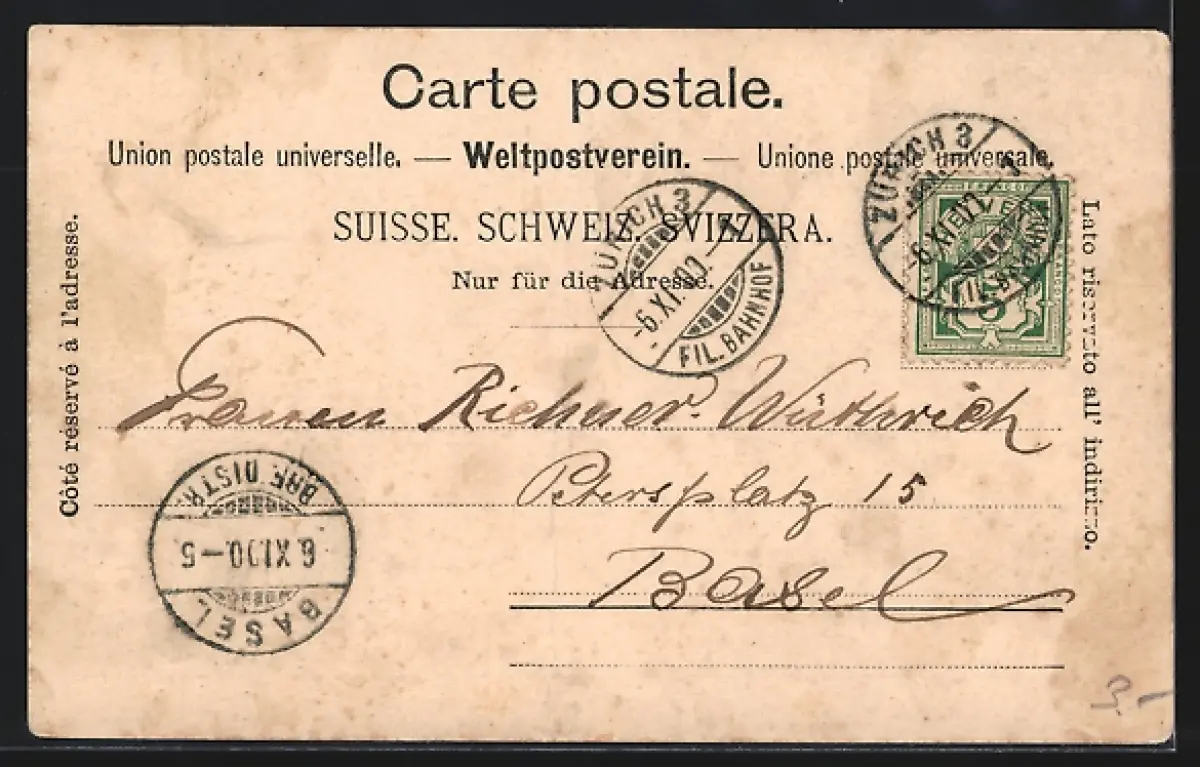 Carte postale.
Union postale universelle. — Weltpostverein. — Unione postale universale.
SUISSE. SCHWEIZ. SVIZZERA.
Nur für die Adresse.
Côté réservé à l'adresse.
Lato riservato all' indirizzo.
ZÜRICH 3
6.XI.00.–
FIL. BAHNHOF
ZÜRICH 3
6.XI.00.–
FIL. BAHNHOF
Richner-Wüthrich
Petersplatz 15
Basel
BRF. DISTR.
6.XI.00.–5
BASEL
3.–